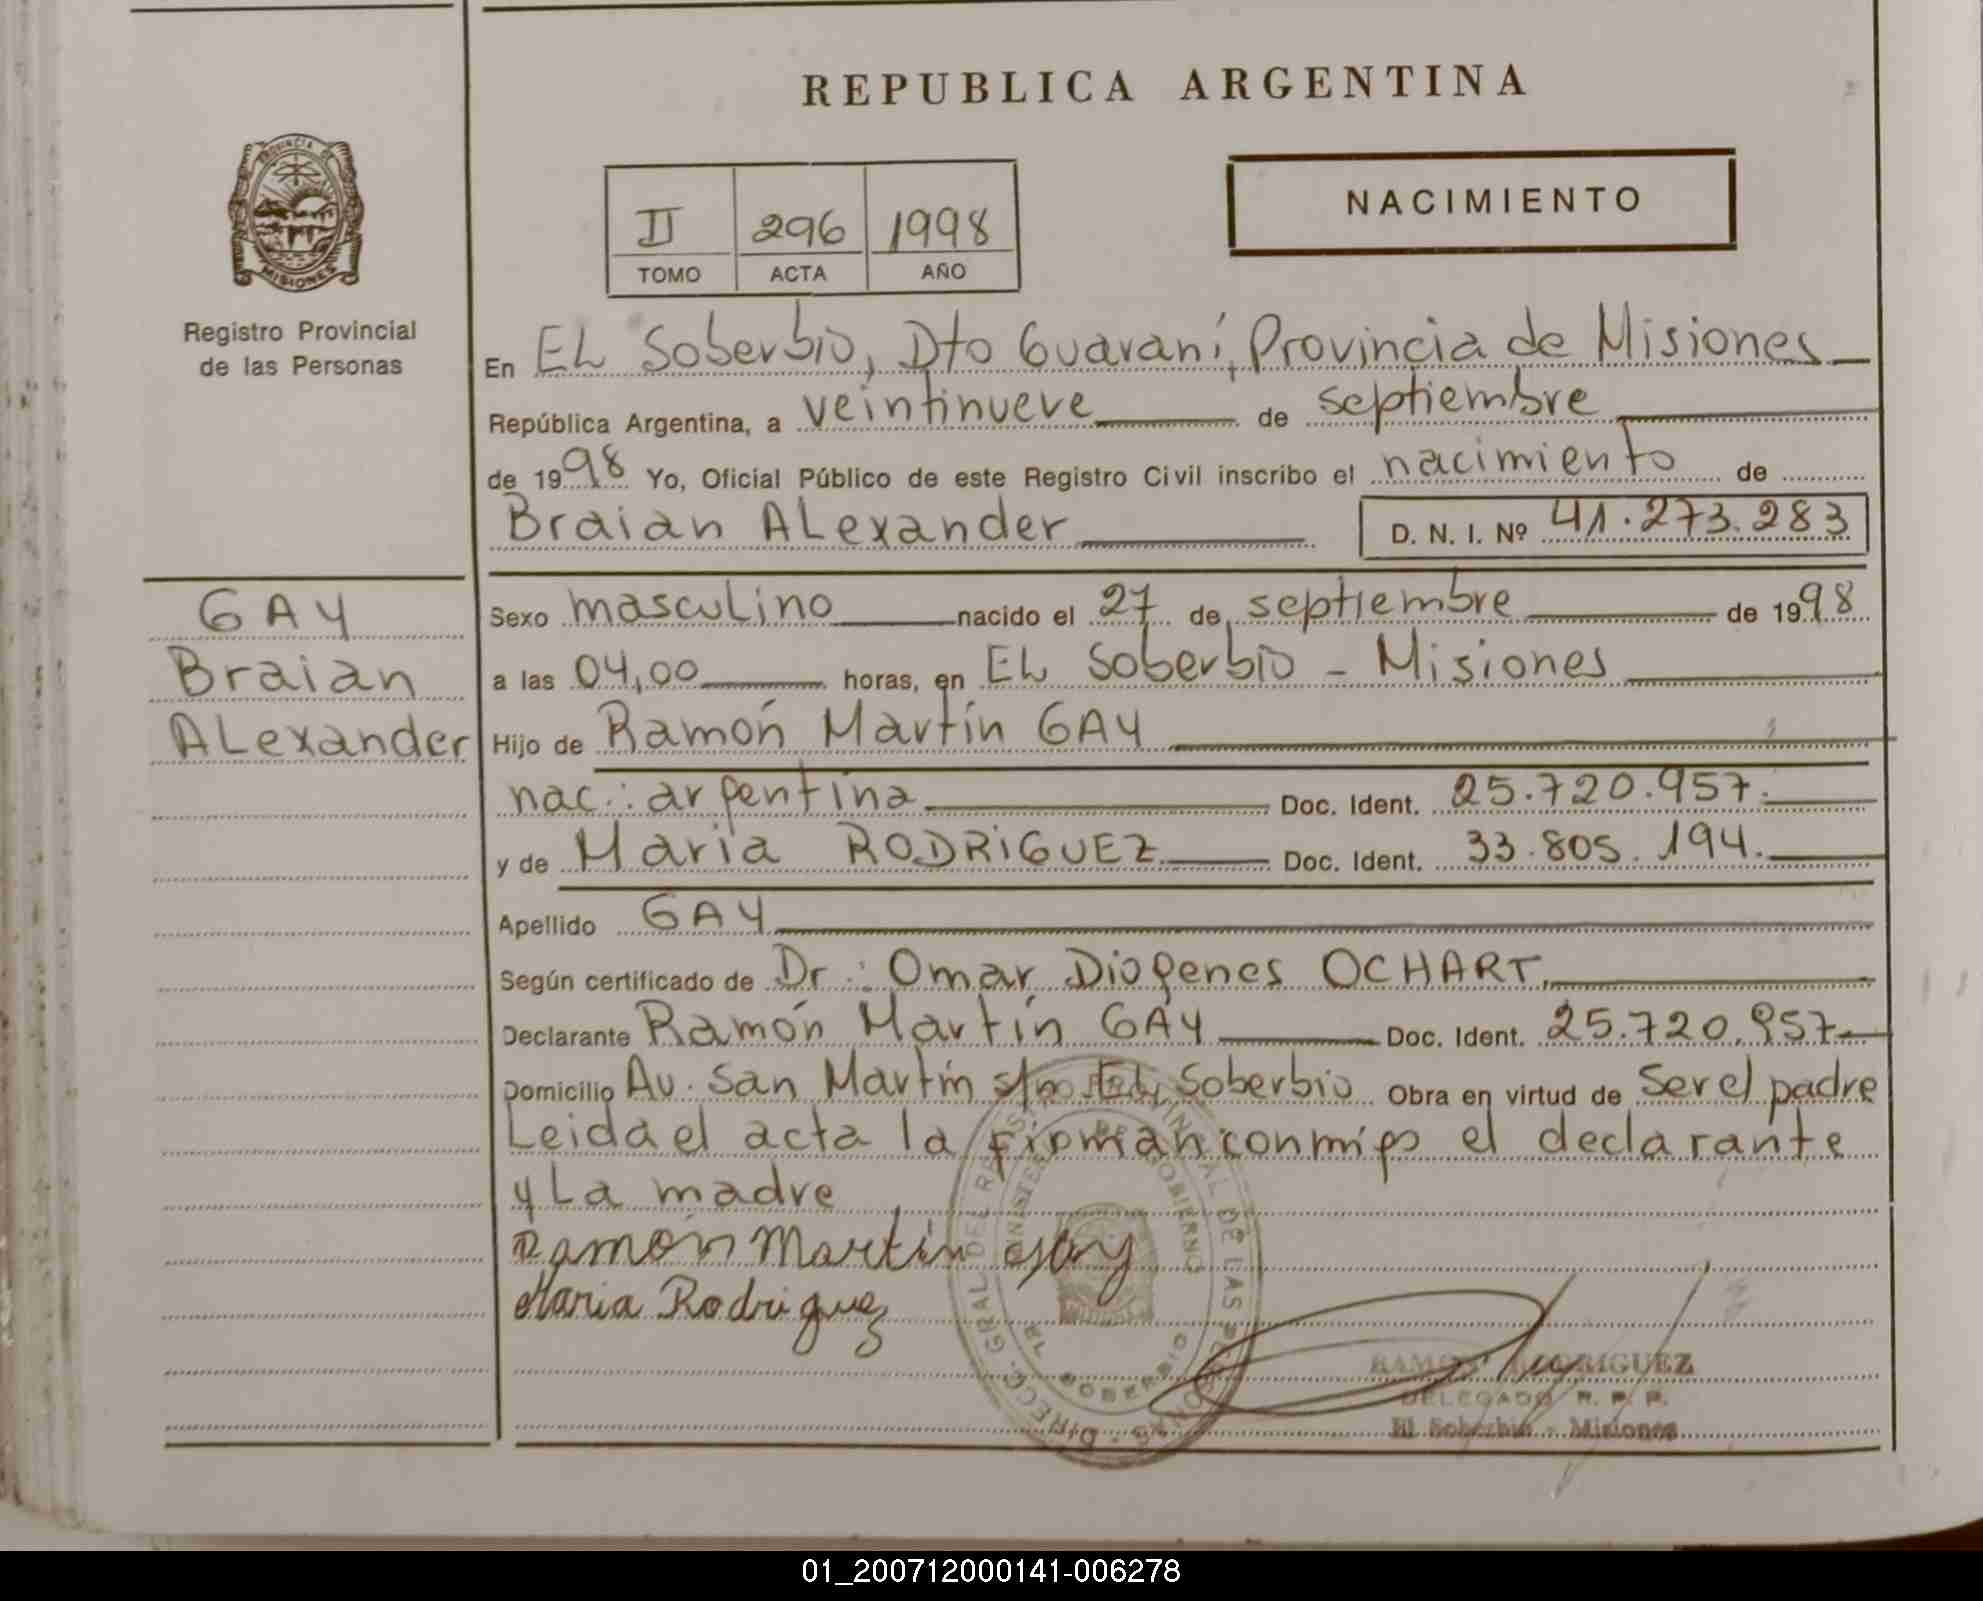 REPUBLICA ARGENTINA
PROVINCIA DE
MISIONES
Registro Provincial
de las Personas
II 296 1998
TOMO ACTA AÑO
NACIMIENTO
En EL Soberbio, Dto Guaraní, Provincia de Misiones
República Argentina, a veintinueve de septiembre
de 1998 Yo, Oficial Público de este Registro Civil inscribo el nacimiento de
Braian ALexander D. N. I. Nº 41.273.283
GAY
Braian
ALexander
Sexo mascuLino nacido el 27 de septiembre de 1998
a las 04,00 horas, en EL Soberbio - Misiones
Hijo de Ramón Martín GAY
nac.: argentina Doc. Ident. 25.720.957.
y de Maria RODRIGUEZ Doc. Ident. 33.805.194.
Apellido GAY
Según certificado de Dr.: Omar Diogenes OCHART
Declarante Ramón Martín GAY Doc. Ident. 25.720.957
Domicilio Av. San Martín s/n EL Soberbio Obra en virtud de Ser el padre
Leida el acta la firman conmigo el declarante
y La madre
Ramón Martín Gay
Maria Rodriguez
DIRECC. GRAL DEL REGISTRO PROVINCIAL DE LAS PERSONAS
MINISTERIO DE GOBIERNO
SOBERBIO
RAMON RODRIGUEZ
DELEGADO R. P. P.
El Soberbio - Misiones
01_200712000141-006278